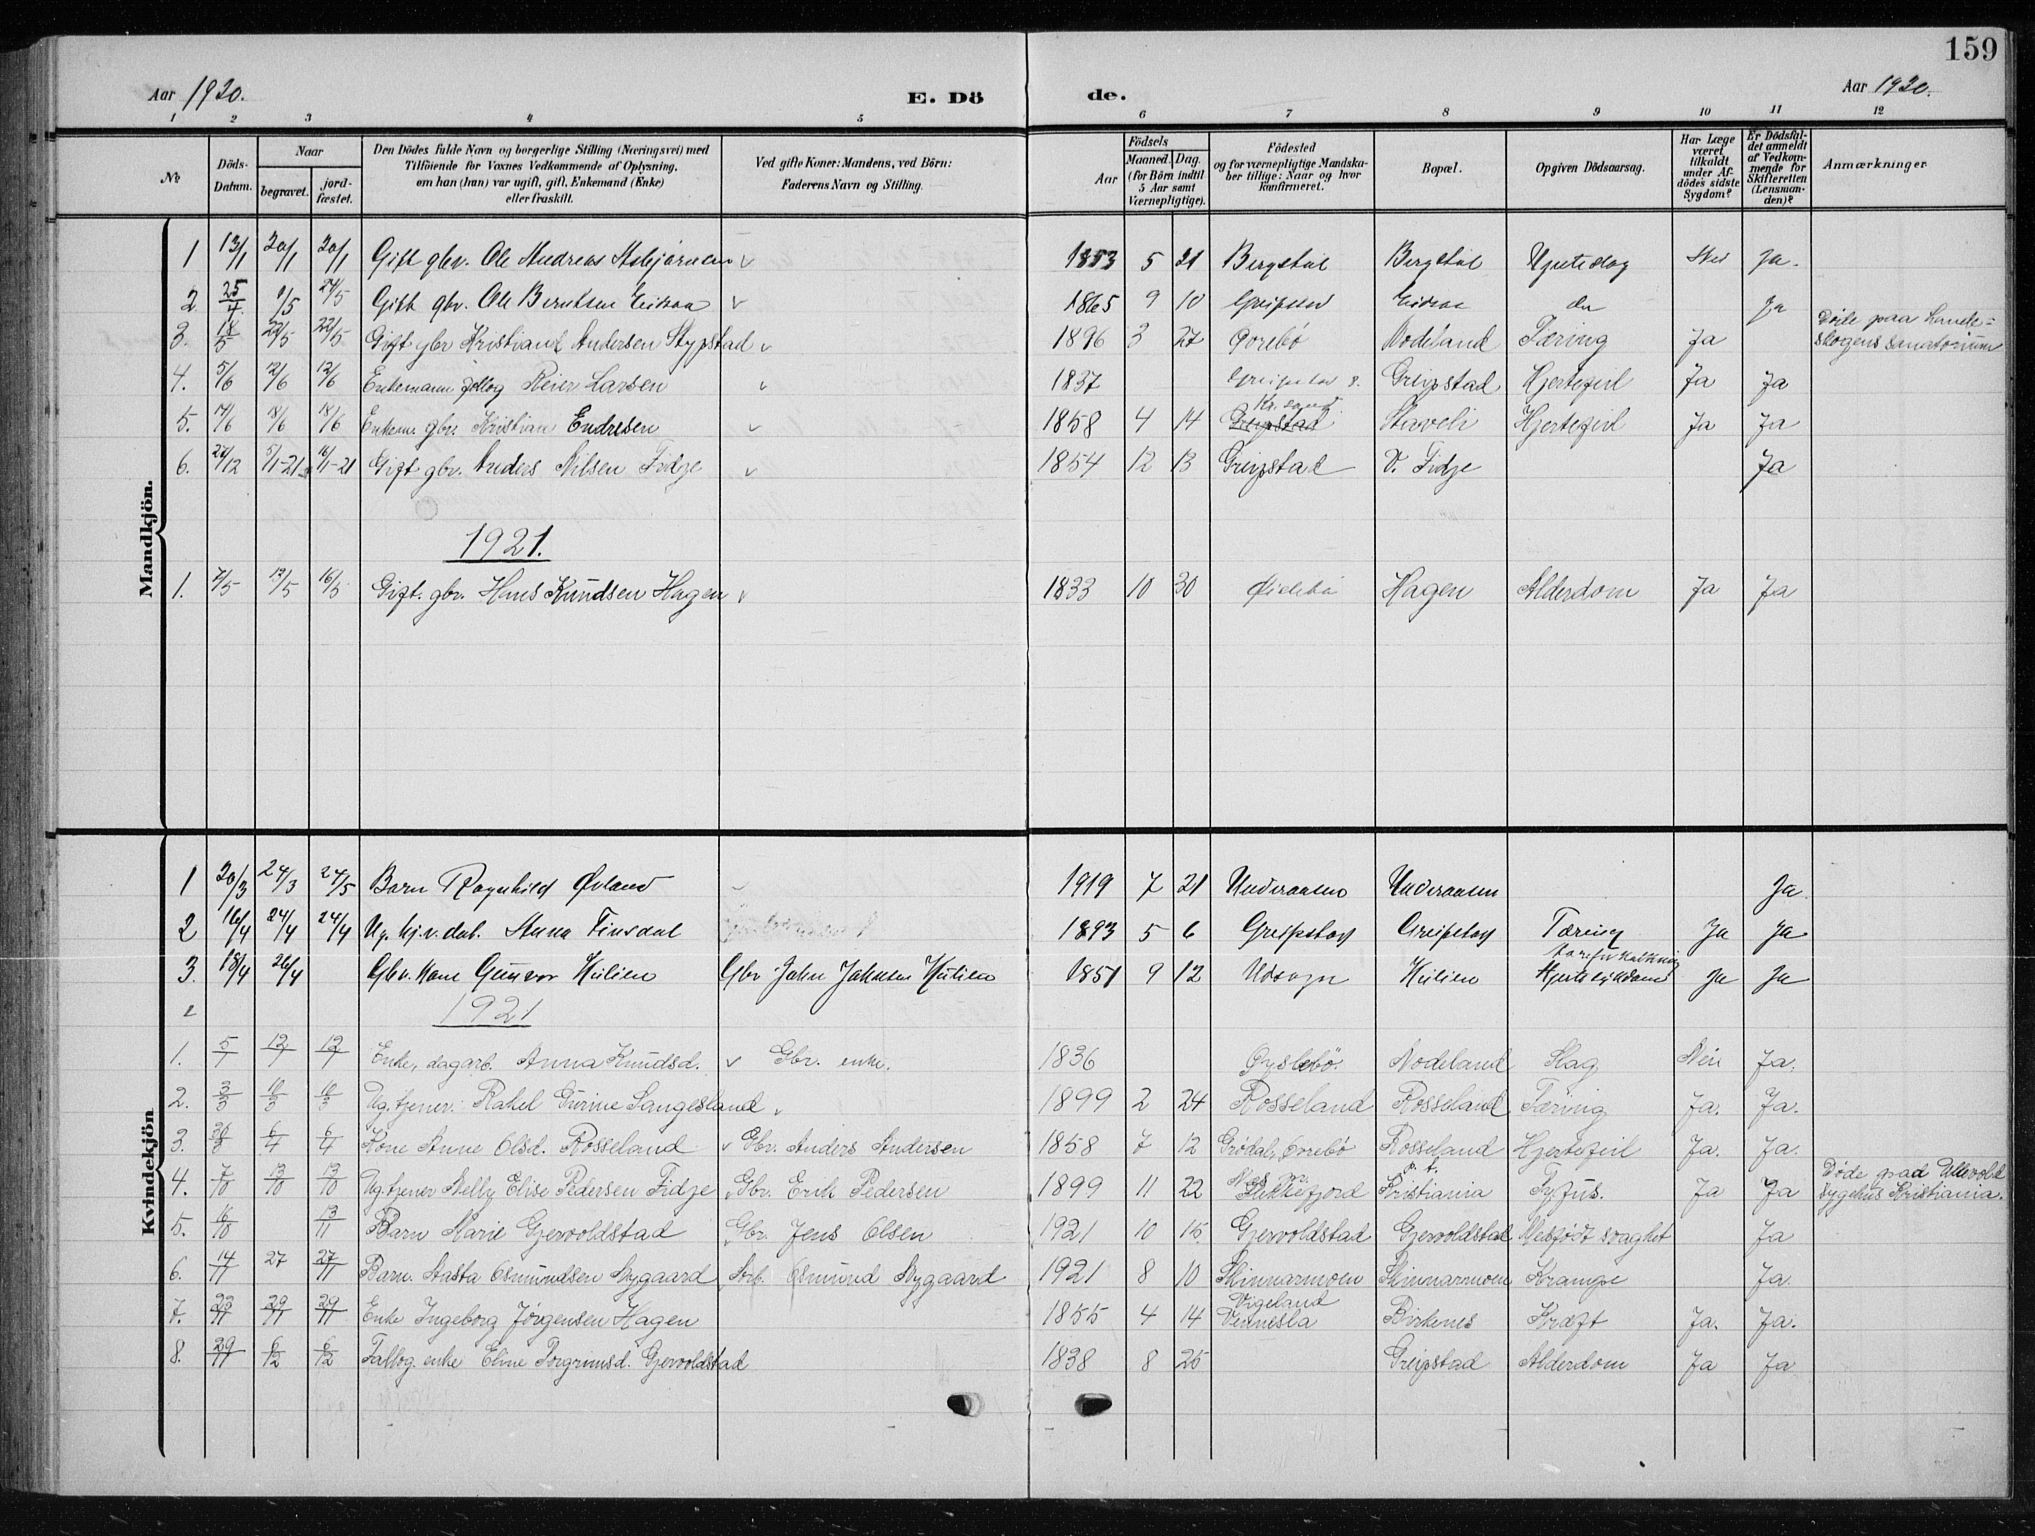 159
Aar 1920. E. Dö de. Aar 1920.
1 2 3 4 5 6 7 8 9 10 11 12
No. Döds-Datum. Naar begravet. jord-fæstet. Den Dödes fulde Navn og borgerlige Stilling (Næringsvei) med Tilföiende for Voxnes Vedkommende af Oplysning, om han (hun) var ugift, gift, Enkemand (Enke) eller fraskilt. Ved gifte Koner: Mandens, ved Börn: Faderens Navn og Stilling. Födsels Aar Maaned. Dag. (for Börn indtil 5 Aar samt Værnepligtige). Födested og for værnepligtige Mandskaber tillige: Naar og hvor konfirmeret. Bopæl. Opgiven Dödsaarsag. Har Læge været tilkaldt under Afdödes sidste Sygdom? Er Dödsfaldet anmeldt af Vedkommende for Skifteretten (Lensmanden)? Anmærkninger
Mandkjön.
1 13/1 20/1 20/1 Gift gbr. Ole Andreas Asbjørnsen v 1853 5 21 Bergstøl Bergstøl Hjerteslag Nei Ja.
2. 25/4 9/5 24/5 Gift gbr. Ole Berntsen v 1865 9 10 Greipstad do Ja
3. 18/5 22/5 22/5 Gift gbr Kristian Andersen Stypstad v 1896 3 27 Øvrebø Nodeland Tæring Ja Døde paa Lande=skogens sanatorium
4. 5/6 12/6 12/6 Enkemann follog Reier Larsen v 1837 Greipstad Greipstad Hjertefeil Ja Ja
5. 14/6 18/6 18/6 Enkem. gbr. Kristian Endresen v 1858 4 14 Greipstad Kr.sand Straveli Hjertefeil Ja Ja
6. 5/1-21 16/1-21 Gift gbr. Anders Nilsen Fidje v 1854 12 13 Greipstad V. Fidje Ja
1921.
1. 7/5 13/5 16/5 Gift. gbr. Hans Knudsen Hagen v 1833 10 30 Øislebø Hagen Alderdom Ja Ja
Kvindekjön
1 20/3 24/3 24/5 Barn Ragnhild Øvland 1919 7 21 Underaasen Underaasen Ja.
2 16/4 24/4 24/4 Ug. hj.v. dat. Anna Finsdal 1893 5 6 Greipstad Greipstad Tæring Ja Ja
3. 18/4 26/4 Gbr. kone Gunvor Kulien Gbr John Johnsen Kulien 1851 9 12 Udsogn Kulien Hjertesykdom Ja Ja
1921
1. 5/1 12/1 12/1 Enke, dagarb. Anna Knudsd. v Gbr. enke. 1836 Øyslebø. Nodeland Slag Nei Ja.
2. 3/3 10/3 10/3 Ug. tjener. Rakel Gurine Langesland v 1899 2 24 Rosseland Rosseland Tæring Ja. Ja.
3. 6/4 6/4 Kone Anne Olsd. Rosseland v Gbr. Anders Andersen 1858 7 12 Grødal, Øvrebø Rosseland Hjertefeil Ja. Ja.
4. 7/10 13/10 13/10 Ug. tjener Nelly Elise Pedersen Fidje v Gbr. Erik Pedersen 1899 11 22 Flekkefjord Kristiania p.t. Tyfus. Ja Ja Døde paa Ullevold sygehus Kristiania.
5. 16/10 13/11 Barn Marie Gjervoldstad Gbr. Jens Olsen 1921 10 15 Gjervoldstad Gjervoldstad Medfødt svaghet Ja
6. 14/11 27 27/11 Barn. Aasta Osmundsen Nygaard Arb. Osmund Nygaard 1921 8 10 Skinnarmoen Skinnarmoen Krampe Ja.
7. 23/11 29/11 29/11 Enke Ingeborg Jørgensen Hagen 1855 4 14 Vigeland Vennesla Birkenes Kræft Ja. Ja.
8. 29/11 6/12 6/12 Fallog. enke Eline Torgrimsd. Gjervoldstad 1838 8 25 Greipstad Alderdom Ja Ja